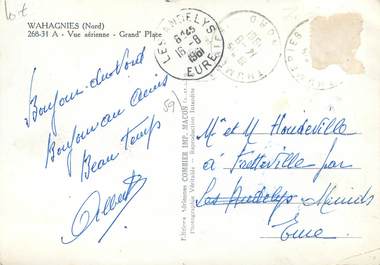 lot
WAHAGNIES (Nord)
268-31 A - Vue aérienne - Grand' Place
LES ANDELYS
8H45
16-8
1961
EURE
THUMERIES
NORD
Bonjour du Nord
Bonjour aux amis
Beau Temps
Albert
59)
Editions Aériennes COMBIER IMP. MACON
Photographie Véritable - Reproduction Interdite
Mr et Mme
à Fretteville par
Les Andelys Muids
Eure